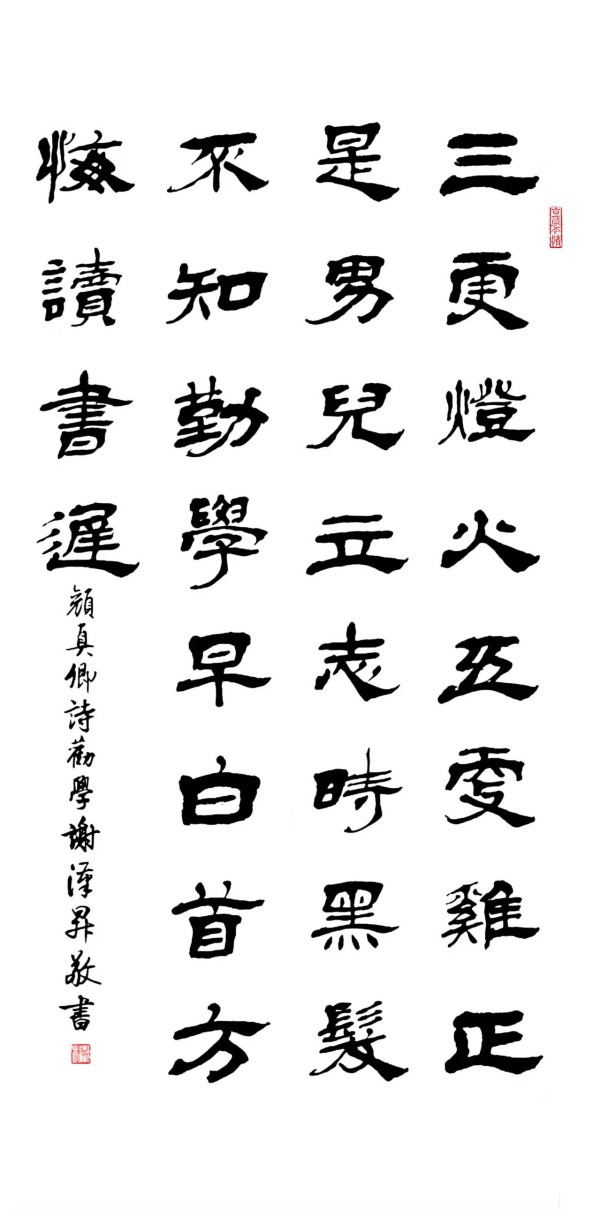 三更燈火五更雞正
是男兒立志時黑髮
不知勤學早白首方
悔讀書遲
顏真卿詩勸學謝昇敬書